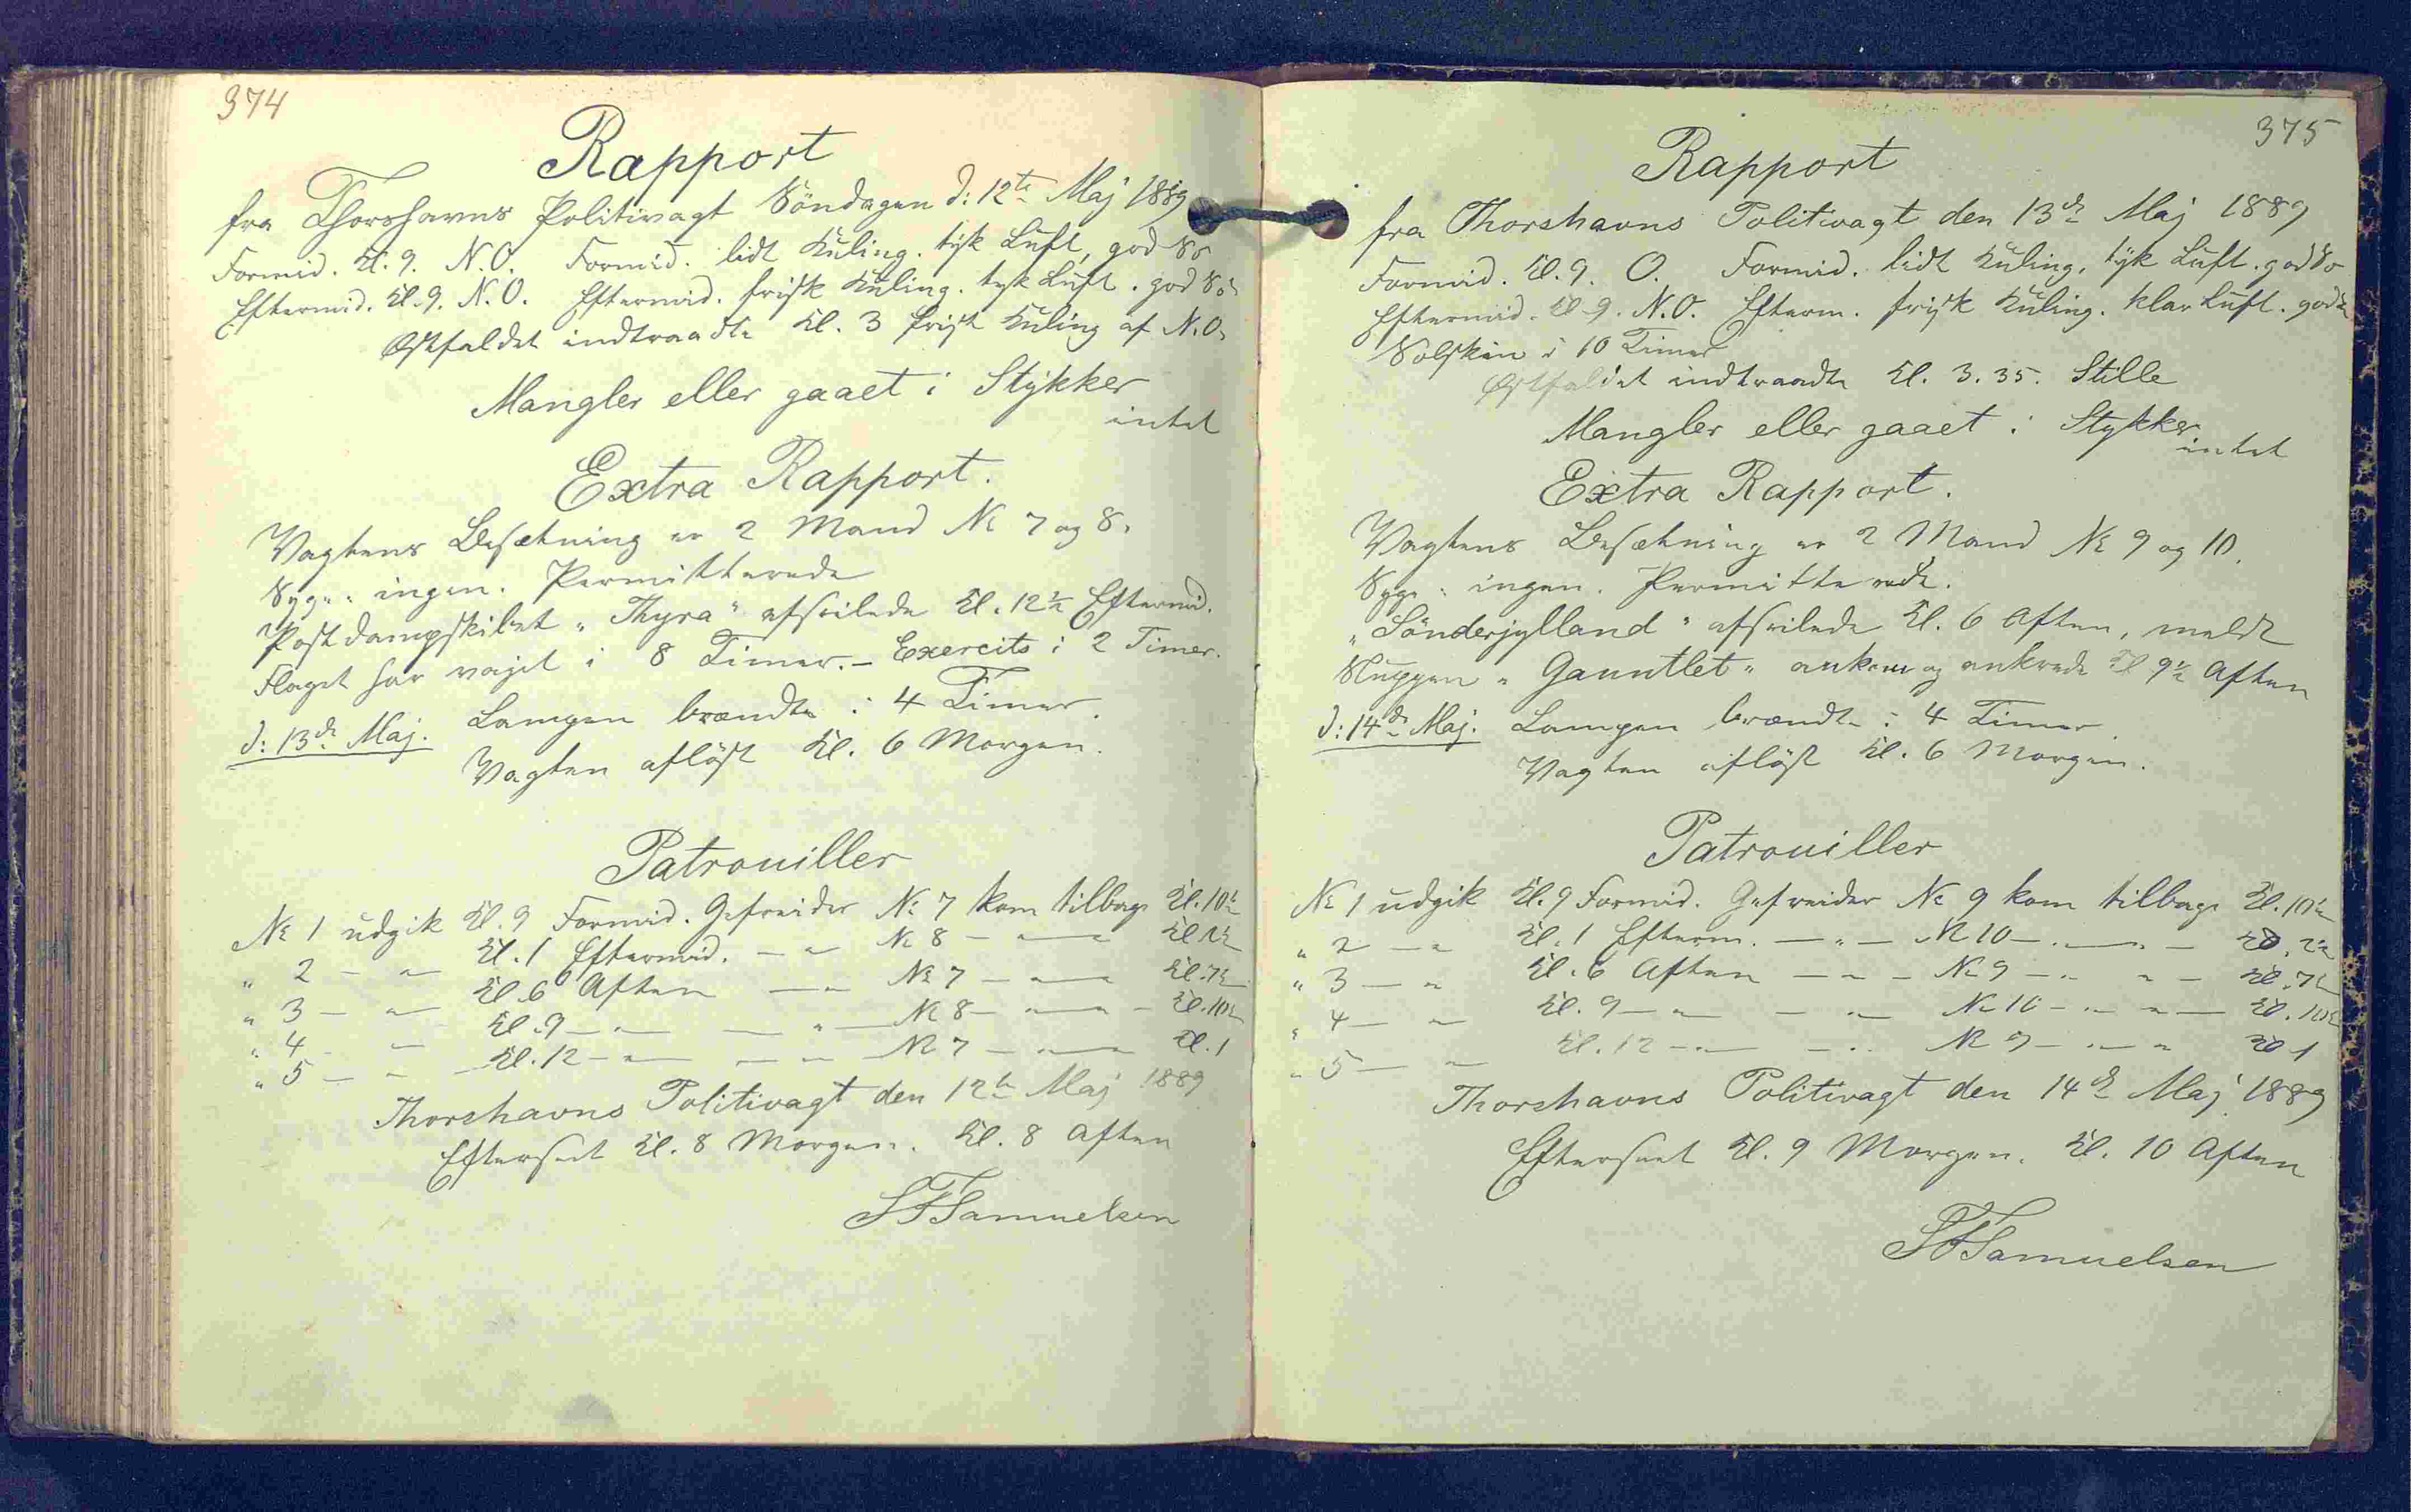 374
Rapport
fra Thorshavns Politivagt Söndagen d: 12te Maj 1889
Formid. Kl. 9. N.O. Formid. lidt Kuling. tyk Luft, god Sö
Eftermid. Kl. 9. N.O. Eftermid. frisk Kuling. tyk Luft. god Sö
Østfaldet indtraadte Kl. 3 frisk Kuling af N.O.
Mangler eller gaaet i Stykker
intet
Extra Rapport.
Vagtens Besætning er 2 Mand No 7 og 8.
Syge: ingen. Permitterede
Postdampskibet "Thyra" afseilede Kl. 12½ Eftermid.
Flaget har vajet i 8 Timer. - Exercits i 2 Timer.
d: 13de Maj. Lampen brændte i 4 Timer.
Vagten aflöst Kl. 6 Morgen.
Patrouiller
No 1 udgik Kl. 9 Formid. Gefreider No 7 kom tilbage Kl. 10½
" 2 - " Kl. 1 Eftermid. - " No 8 - " Kl.
" 3 - " Kl. 6 Aften - " No 7 - " Kl. 7½
" 4 - " Kl. 9 - " - " - No 8 - " - Kl. 10½
" 5 - " - Kl. 12 - " - " - No 7 - " Kl. 1
Thorshavns Politivagt den 12te Maj 1889
Efterseet Kl. 8 Morgen. Kl. 8 Aften
SFSamuelsen
375
Rapport
fra Thorshavns Politivagt den 13de Maj 1889
Formid. Kl. 9. O. Formid. lidt Kuling. tyk Luft. god Sö
Eftermid. Kl. 9. N.O. Efterm. frisk Kuling. klar Luft. god
Solskin i 10 Timer
Østfaldet indtraadte Kl. 3. 35. Stille
Mangler eller gaaet i Stykker
intet
Extra Rapport.
Vagtens Besætning er 2 Mand No 9 og 10.
Syge: ingen. Permitterede.
"Sönderjylland" afseilede Kl. 6 Aften, meldt
Sluppen "Gauntlet" ankom og ankrede Kl 9½ Aften
d: 14de Maj. Lampen brændte i 4 Timer.
Vagten aflöst Kl. 6 Morgen.
Patrouiller
No 1 udgik Kl. 9 Formid. Gefreider No 9 kom tilbage Kl. 10½
" 2 - " Kl. 1 Efterm. - " - No 10 - " - Kl. 2½
" 3 - " Kl. 6 Aften - " - No 9 - " " - Kl. 7½
" 4 - " Kl. 9 - " - " No 10 - " " - Kl. 10½
" 5 - " Kl. 12 - " - " No 9 - " " Kl 1
Thorshavns Politivagt den 14de Maj 1889
Efterseet Kl. 9 Morgen. Kl. 10 Aften
SFSamuelsen